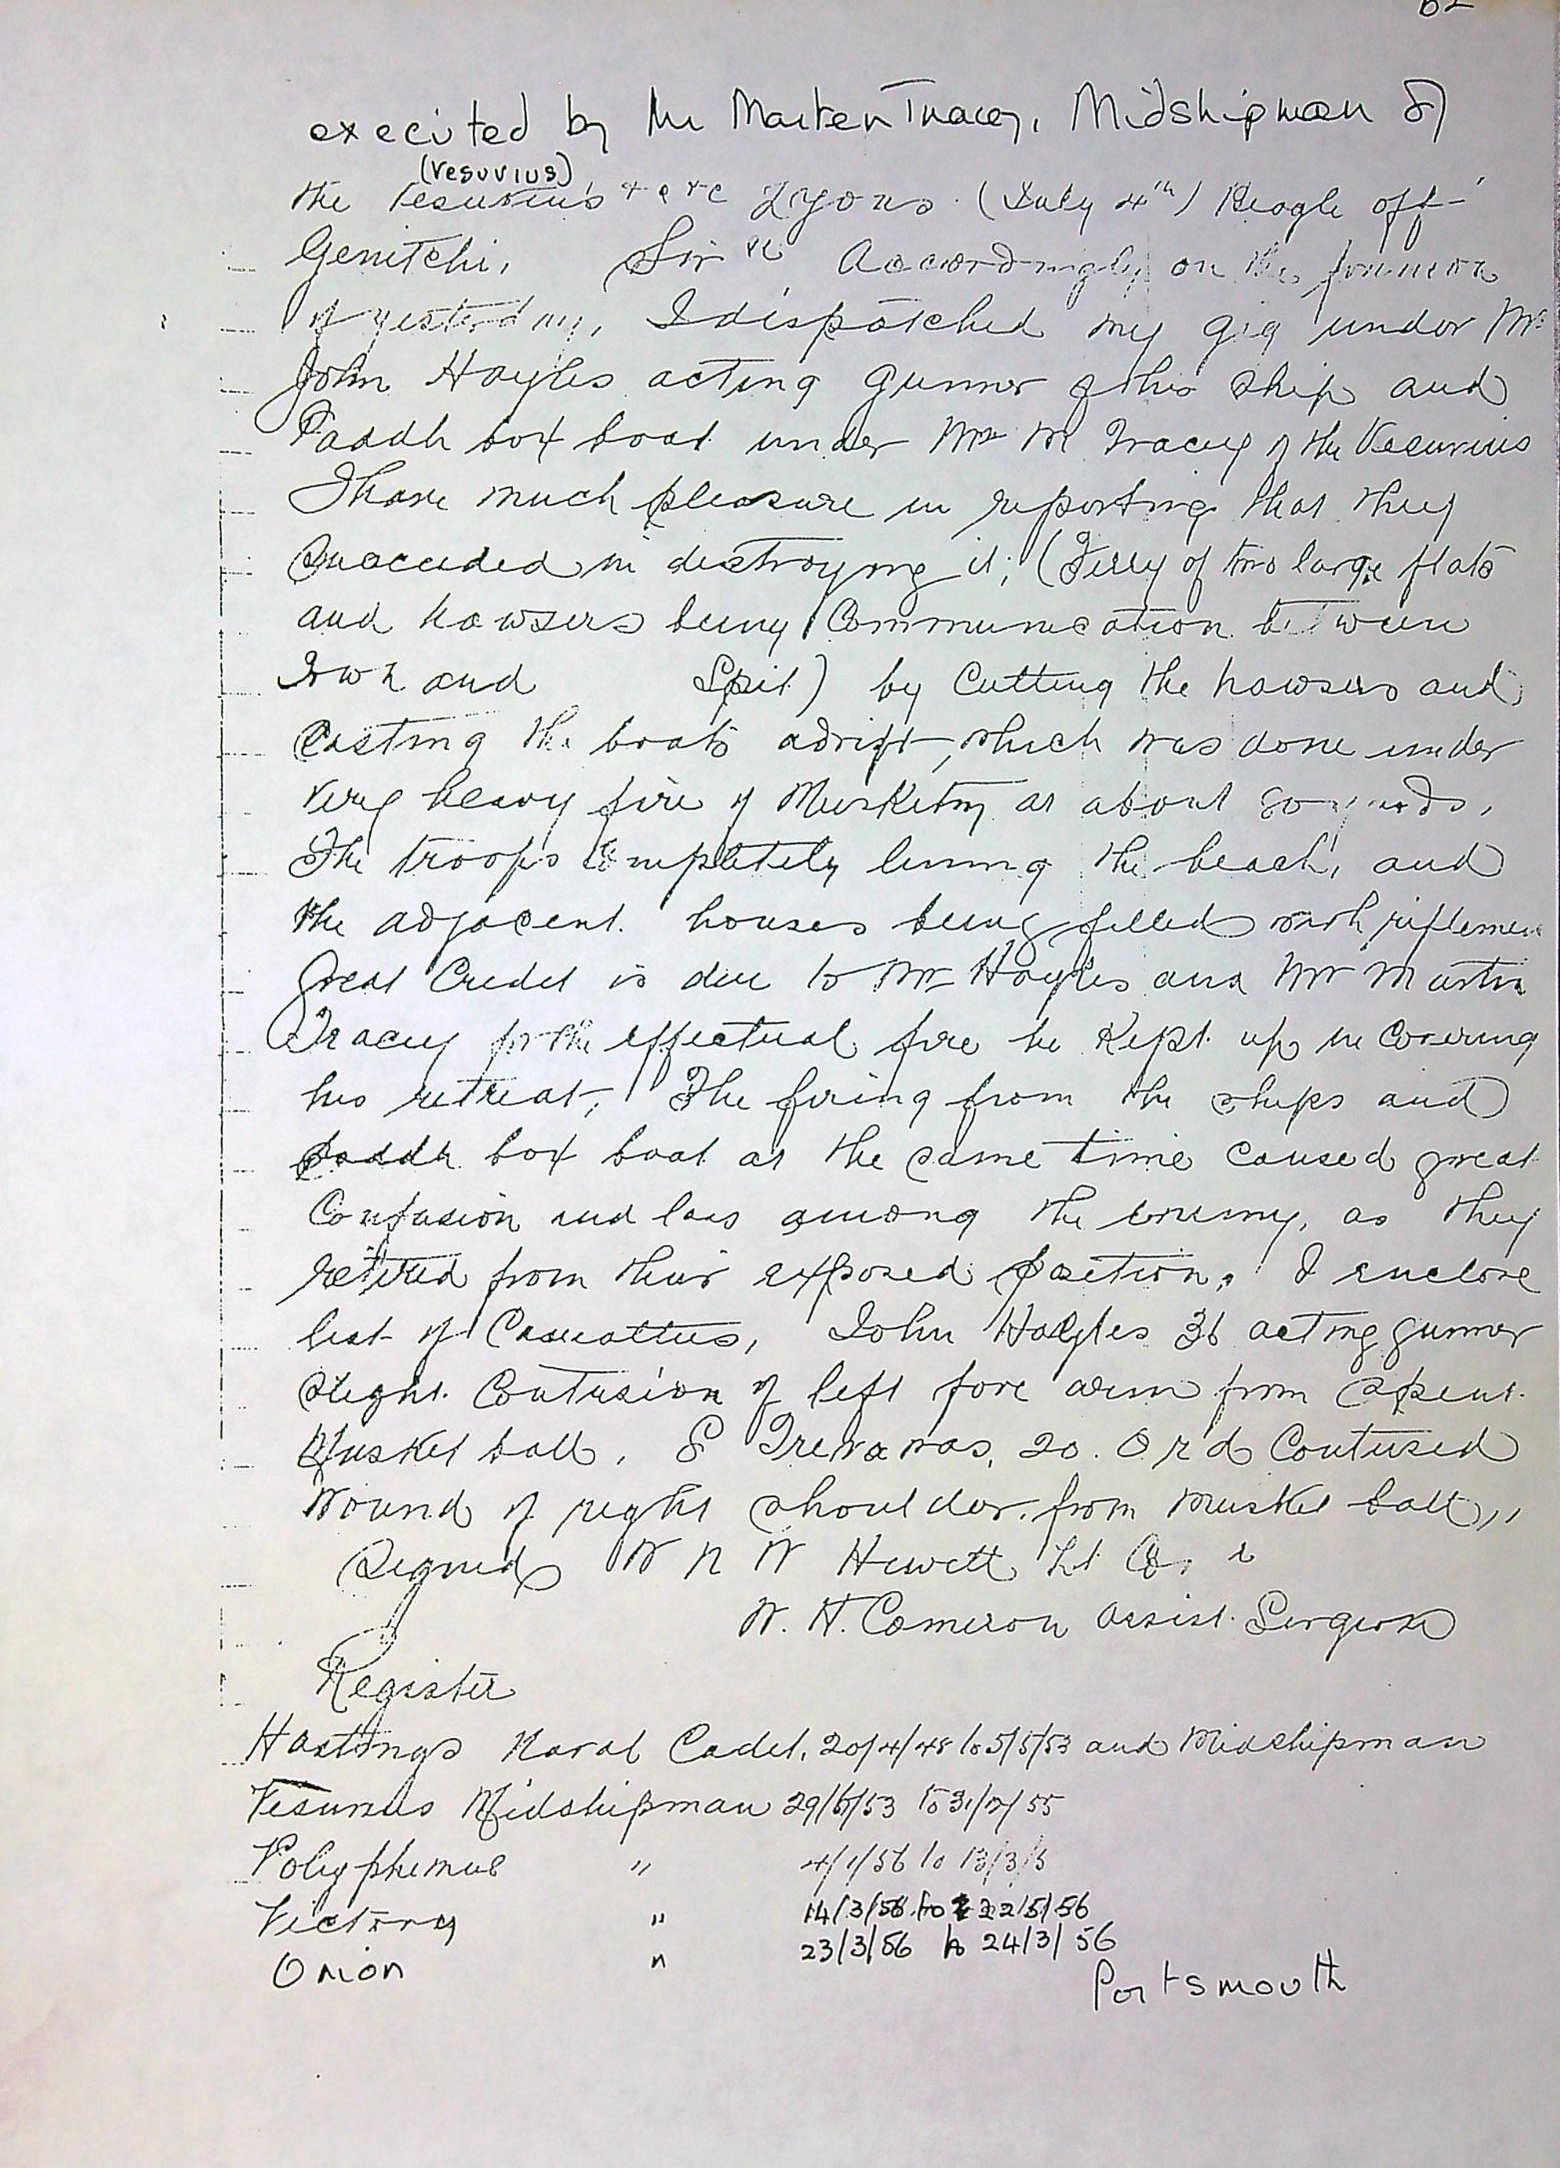 62
executed by Mr Marten Tracey, Midshipman of
(Vesuvius)
the Vesuvius etc Lyons. (July 4th) Beagle off
Genitchi, Sir Accordingly on the
of yesterday, I dispatched my gig under Mr
John Hayles acting gunner of this ship and
Paddle box boat under Mr M Tracey of the Vesuvius
I have much pleasure in reporting that they
Succeeded in destroying it; (Ferry of two large flats
and hawsers being Communication between
Town and Spit) by Cutting the hawsers and
Casting the boats adrift, which was done under
very heavy fire of Musketry at about 80 yards,
The troops Completely lining the beach, and
the adjacent houses being filled with riflemen
Great Credit is due to Mr Hayles and Mr Martin
Tracey for the effectual fire he Kept up in Covering
his retreat, The firing from the ships and
paddle box boat at the same time caused great
Confusion and loss among the enemy, as they
retired from their exposed position. I enclose
list of Casualties, John Hayles 36 acting gunner
Slight Contusion of left fore arm from Spent
Musket ball, 20. Ord Contused
Wound of right shoulder from musket ball,,
Signed W N W Hewett Lt
W. H. Cameron Assist. Surgeon
Register
Hastings Naval Cadet, 20/4/48 to 5/5/53 and Midshipman
Vesuvius Midshipman 29/6/53 to 31/12/55
Polyphemus " 4/1/56 to 13/3/5
Victory " 14/3/56 to 22/5/56
23/3/56 to 24/3/56
Orion "
Portsmouth